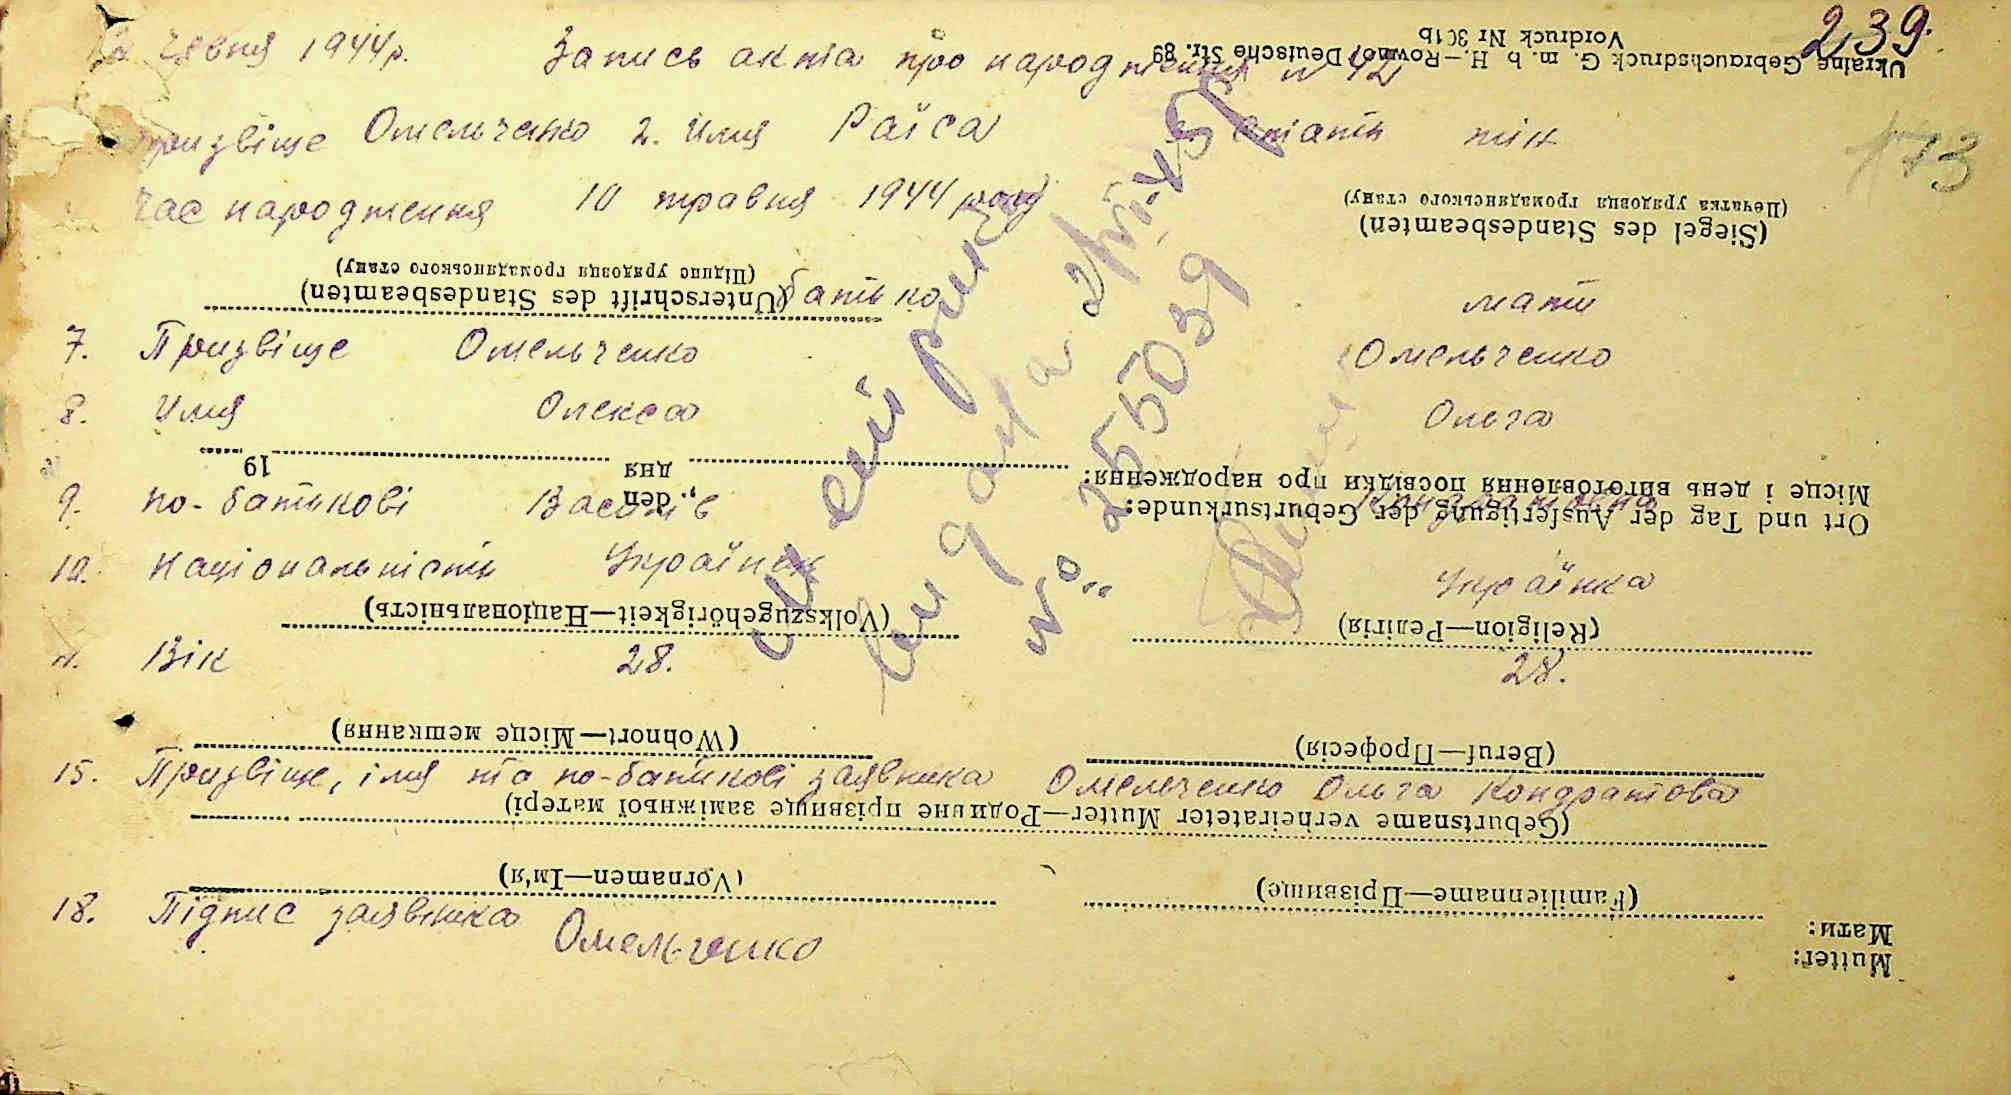 червня 1944р. Запись акта про народження № 42
239.
173
призвіще Омельченко 2. Имя Раїса 3. стать жін
час народження 10 травня 1944 року
батько мати
7. Призвіще Омельченко Омельченко
8. Имя Олекса Ольга
9. по-батькові Васильів Кондратовна
10. Національність Українец Українка
11. Вік 28. 28.
15. Призвіще, імя та по-батькові заявника Омельченко Ольга Кондратова
18. Підпис заявника Омельченко
№ 255039
Mutter:
Мати:
(Familienname—Прізвище) (Vornamen—Ім'я)
(Geburtsname verheirateter Mutter—Родинне прізвище заміжньої матері)
(Beruf—Професія) (Wohnort—Місце мешкання)
(Religion—Релігія) (Volkszugehörigkeit—Національність)
Ort und Tag der Ausfertigung der Geburtsurkunde:
Місце і день виготовлення посвідки про народження:
, den
дня 19
(Unterschrift des Standesbeamten)
(Підпис урядовця громадянського стану)
(Siegel des Standesbeamten)
(Печатка урядовця громадянського стану)
Ukraine Gebrauchsdruck G. m. b. H.—Rowno, Deutsche Str. 89
Vordruck Nr 301b